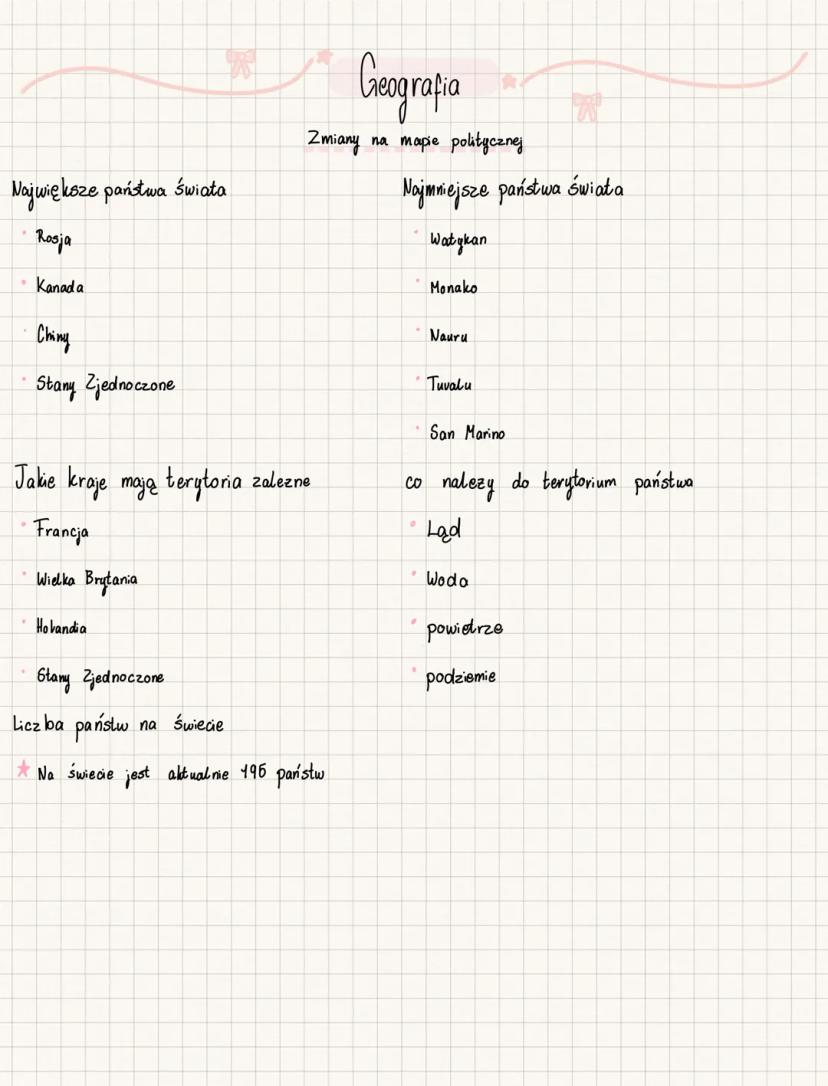 Geografia
Zmiany na mapie politycznej
Największe państwa świata
Rosja
Kanada
Chiny
Stany Zjednoczone
Najmniejsze państwa świata
Watykan
Monako
Nauru
Tuvalu
San Marino
Jakie kraje mają terytoria zalezne
Francja
Wielka Brytania
Holandia
Stany Zjednoczone
co nalezy do terytorium państwa
Ląd
Woda
powietrze
podziemie
Liczba państw na świecie
Na świecie jest aktualnie 195 państw